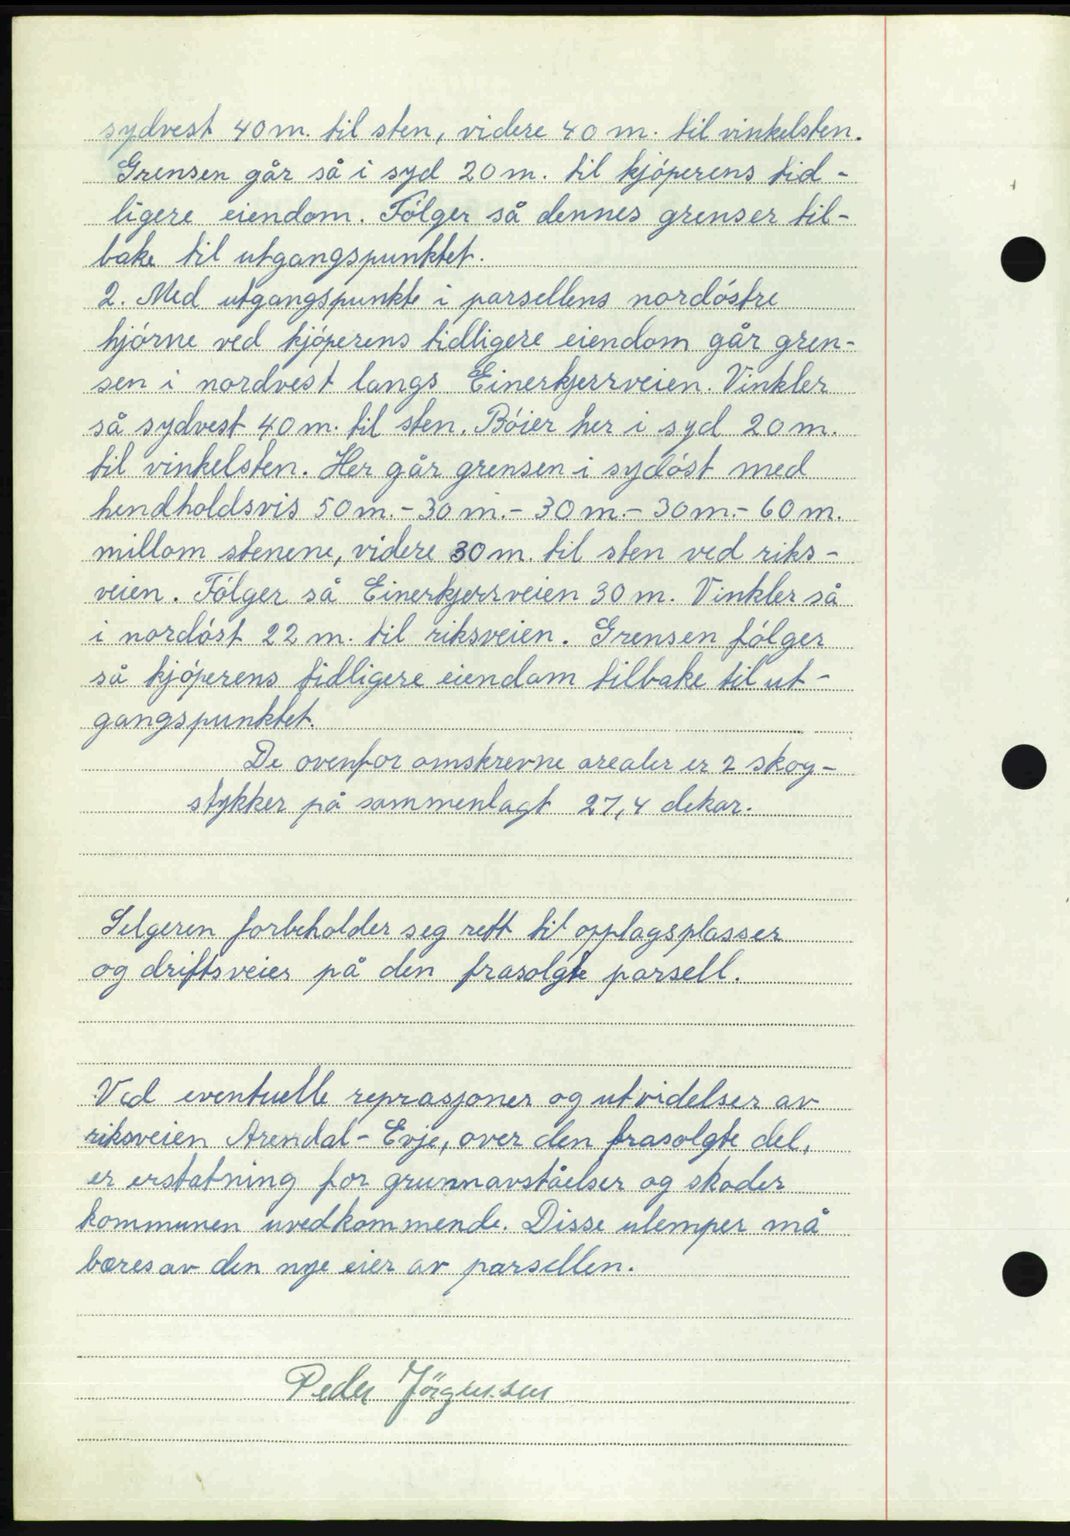 sydvest 40 m. til sten, videre 40 m. til vinkelsten.
Grensen går så i syd 20 m. til kjóperens tid-
ligere eiendom. Fólger så dennes grenser til-
bake til utgangspunktet.
2. Med utgangspunkt i parsellens nordóstre
hjórne ved kjóperens tidligere eiendom går gren-
sen i nordvest langs Einerkjerrveien. Vinkler
så sydvest 40 m. til sten. Bóier her i syd 20 m.
til vinkelsten. Her går grensen i sydóst med
hendholdsvis 50 m. - 30 m. - 30 m. - 30 m. - 60 m.
millom stenene, videre 30 m. til sten ved riks-
veien. Fólger så Einerkjerrveien 30 m. Vinkler så
i nordóst 22 m. til riksveien. Grensen fólger
så kjóperens tidligere eiendom tilbake til ut-
gangspunktet.
De ovenfor omskrevne arealer er 2 skog-
stykker på sammenlagt 27,4 dekar.
Selgeren forbeholder seg rett til opplagsplasser
og driftsveier på den frasolgte parsell.
Ved eventuelle reprasjoner og utvidelser av
riksveien Arendal - Evje, over den frasolgte del,
er erstatning for grunnavståelser og skader
kommunen uvedkommende. Disse ulemper må
bæres av den nye eier av parsellen.
Peder Jörgensen